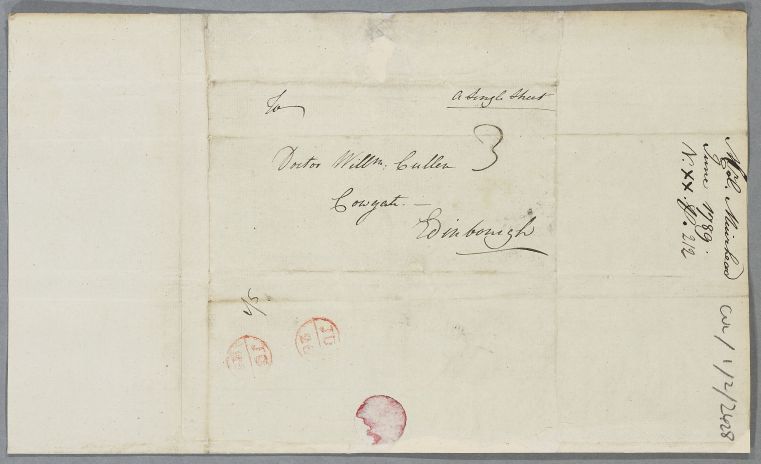 To
A Single Sheet
Doctor Willm. Cullen 3
Cowgate. —
Edinbourgh
5/1
JU
26
JU
26
Muirhead
June 1789.
N. XX p. 212
CUL/1/2/2428